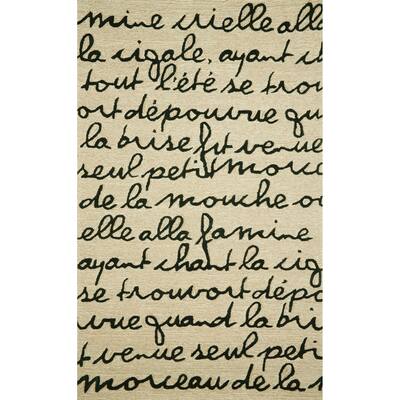 mine crielle alla
la cigale, ayant ch
tout l'été se trou
ort dépouvue qu
la brise fit venue
seul petit morceau
de la mouche ou
elle alla famine
ayant chant la cig
se trouvort dépo
vue quand la bri
t venue seul peti
morceau de la m